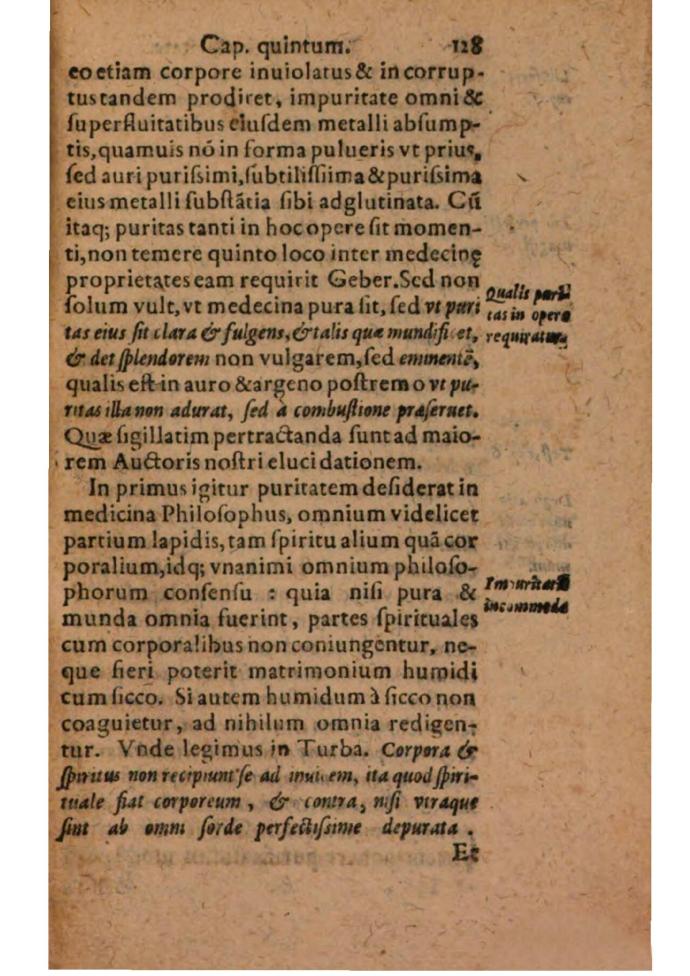 Cap. quintum. 128
eo etiam corpore inuiolatus & incorrup-
tus tandem prodiret, impuritate omni &
ſuperfluitatibus eiuſdem metalli abſump-
tis, quamuis nō in forma pulueris vt prius,
ſed auri puriſsimi, ſubtiliſſima & puriſsima
eius metalli ſubſtātia ſibi adglutinata. Cū
itaq; puritas tanti in hoc opere ſit momen-
ti, non temere quinto loco inter medecinę
proprietates eam requirit Geber. Sed non
ſolum vult, vt medecina pura ſit, ſed vt puri
tas eius ſit clara & fulgens, & talis quæ mundificet,
& det ſplendorem non vulgarem, ſed eminentē,
qualis eſt in auro & argeno poſtremo vt pu-
ritas illa non adurat, ſed à combuſtione præſeruet.
Quæ ſigillatim pertractanda ſunt ad maio-
rem Auctoris noſtri elucidationem.
Qualis puri
tas in opere
requiratur.
In primus igitur puritatem deſiderat in
medicina Philoſophus, omnium videlicet
partium lapidis, tam ſpiritualium quā cor
poralium, idq; vnanimi omnium philoſo-
phorum conſenſu : quia niſi pura &
munda omnia fuerint, partes ſpirituales
cum corporalibus non coniungentur, ne-
que fieri poterit matrimonium humidi
cum ſicco. Si autem humidum à ſicco non
coaguietur, ad nihilum omnia redigen-
tur. Vnde legimus in Turba. Corpora &
ſpiritus non recipiunt ſe ad inuicem, ita quod ſpiri-
tuale fiat corporeum, & contra, niſi vtraque
ſint ab omni ſorde perfectiſsime depurata.
Impuritatis
incommoda
Et